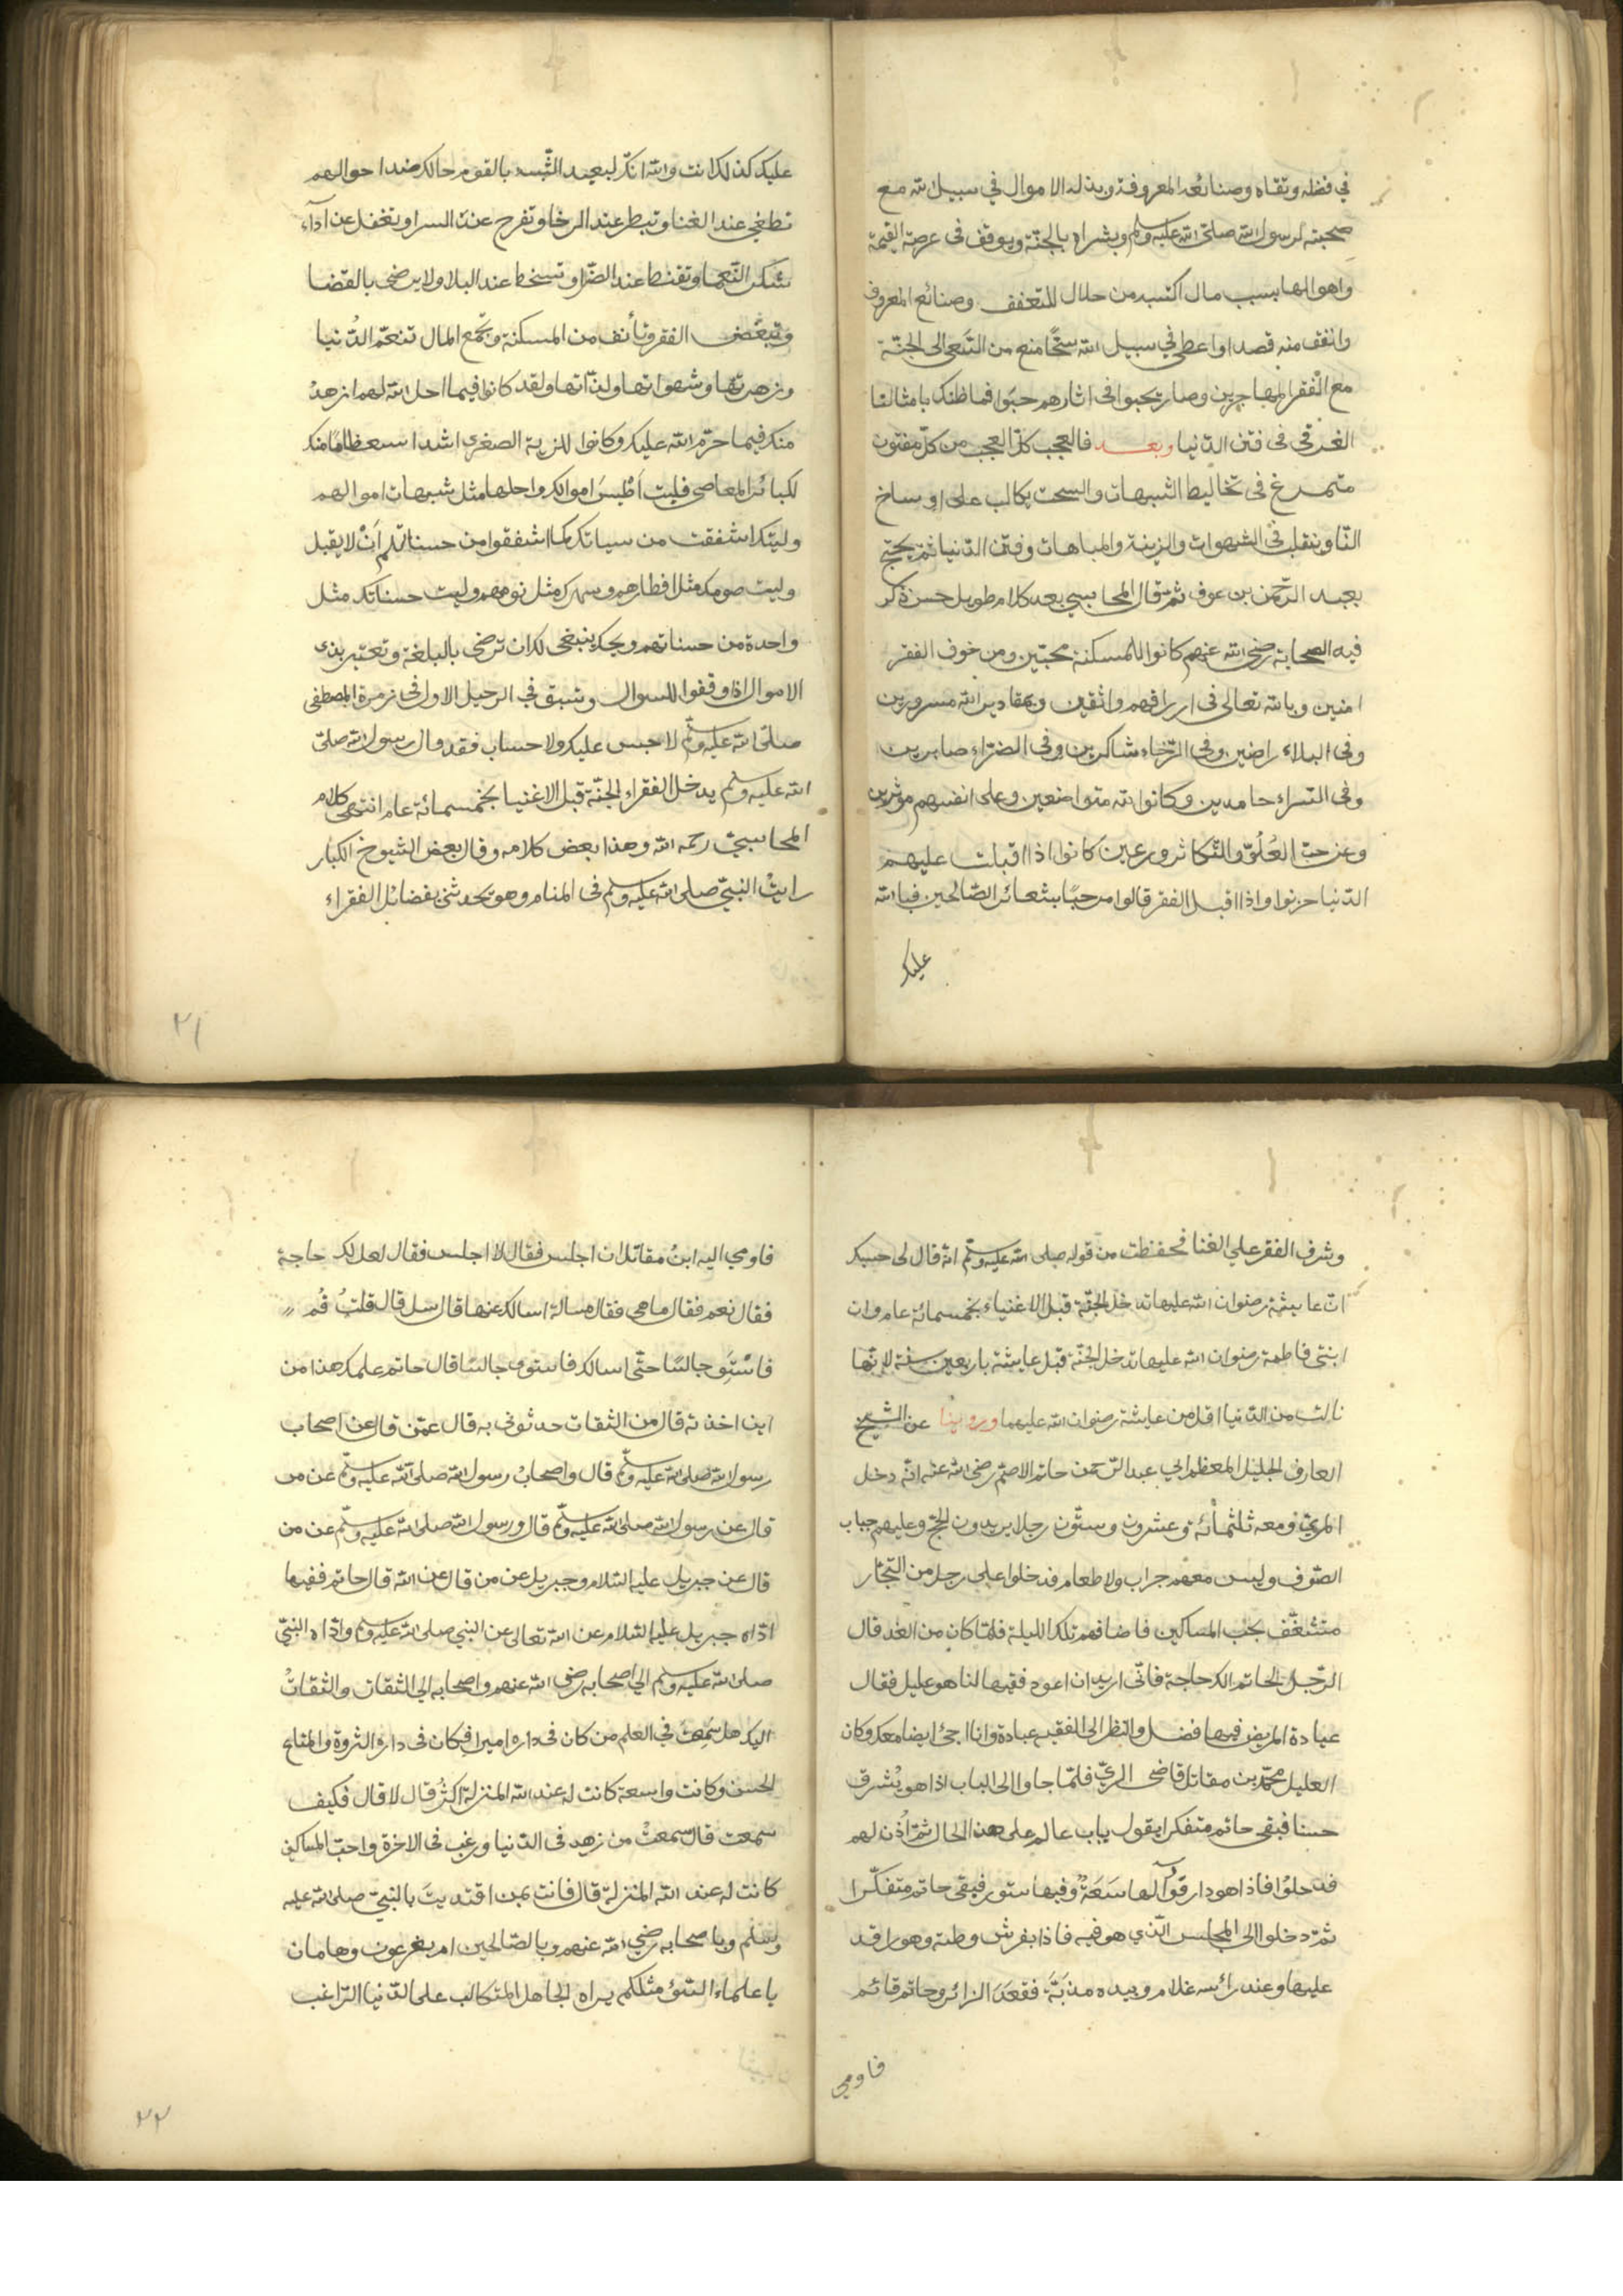 في فضله وتقاه وصنائعه المعروفة وبذله الاموال في سبيل الله مع
صحبته لرسول الله صلى الله عليه وسلم وبشراه بالجنة ويوقف في عرصة القيمة
واهوالها بسبب مال اكتسبه من حلال للتعفف وصنائع المعروف
وانفق منه قصدا واعطي في سبيل الله سخا منع من السعي الى الجنة
مع الفقرا المهاجرين وصار يحبوا في اثارهم حبوا فما ظنك بامثالنا
الغرقى في فتن الدنيا وبعد فالعجب كل العجب من كل مفتون
متمرغ في تخاليط الشبهات والسحت يكالب على اوساخ
الناس ويتقلب في الشهوات والزينة والمباهات وفتن الدنيا ثم يحتج
بعبد الرحمن بن عوف ثم قال المحاسبي بعد كلام طويل حسن ذكر
فيه الصحابة رضي الله عنهم كانوا للمسكنة محبين ومن خوف الفقر
امنين وبالله تعالى في ارزاقهم واثقين وبمقادير الله مسرورين
وفى البلاء راضين وفى الرخاء شاكرين وفى الضراء صابرين
وفى السراء حامدين وكانوا لله متواضعين وعلى انفسهم موثرين
وعن حب العلو والتكاثر ورعين كانوا اذا اقبلت عليهم
الدنيا حزنوا واذا اقبل الفقر قالوا مرحبا بشعائر الصالحين فبالله
عليك
عليك كذلك انت والله انك لبعيد الشبه بالقوم حالك ضد احوالهم
تطغي عند الغنا وتبطر عند الرخا وتفرح عند السرا وتغفل عن اداء
شكر النعما وتقنط عند الضرا وتسخط عند البلا ولا يرضى بالقضا
وتبغض الفقر وتأنف من المسكنة وتجمع المال تنعم الدنيا
وزهرتها وشهواتها ولذاتها ولقد كانوا فيما احل الله لهم ازهد
منك فيما حرم الله عليك وكانوا للزية الصغرى اشد استعظاما منك
لكبائر المعاصي فليت اطيب اموالك واحلها مثل شبهات اموالهم
وليتك اشفقت من سياتك كما اشفقوا من حسناتهم ان لا يقبل
وليت صومك مثل افطارهم وسهرك مثل نومهم وليت حسناتك مثل
واحدة من حسناتهم ويحك ينبغي لك ان ترضى بالبلغة وتعتبر بذي
الاموال اذا وقفوا للسوال وتسبق في الرحيل الاول في زمرة المصطفى
صلى الله عليه وسلم لا حبس عليك ولا حساب فقد قال رسول الله صلى
الله عليه وسلم يدخل الفقراء الجنة قبل الاغنيا بخمسمائة عام انتهى كلام
المحاسبي رحمه الله وهذا بعض كلامه وقال بعض الشيوخ الكبار
رايت النبي صلى الله عليه وسلم في المنام وهو يحدثني بفضائل الفقراء
٢١
وشرف الفقر علي الغنا فحفظت من قوله صلى الله عليه وسلم انه قال لى حسبك
ان عايشة رضوان الله عليها تدخل الجنة قبل الاغنياء بخمسمائة عام وان
ابنتي فاطمة رضوان الله عليها تدخل الجنة قبل عايشة باربعين سنة لانها
نالت من الدنيا اقل من عايشة رضوان الله عليهما وروينا عن الشيخ
العارف الجليل المعظم ابي عبد الرحمن حاتم الاصم رضي الله عنه انه دخل
الري ومعه ثلثمائة وعشرون وستون رجلا يريدون الحج وعليهم جباب
الصوف وليس معهم جراب ولا طعام فدخلوا على رجل من التجار
متشغف يحب المساكين فاضافهم تلك الليلة فلما كان من الغد قال
الرجل لحاتم الك حاجة فاني اريد ان اعود فقيها لنا هو عليل فقال
عيادة المريض فيها فضل والنظر الى الفقيه عبادة وانا اجئ ايضا معك وكان
العليل محمد بن مقاتل قاضي الري فلما جاوا الى الباب اذا هو يشرق
حسنا فبقى حاتم متفكرا يقول باب عالم على هذا الحال ثم اذن لهم
فدخلوا فاذا هو دار قورا لها سعة وفيها ستور فبقى حاتم متفكرا
ثم دخلوا الى المجلس الذي هو فيه فاذا بفرش وطية وهو راقد
عليها وعند رأسه غلام وبيده مذبة فقعد الزائر وحاتم قائم
فاومي
فاومي اليه ابن مقاتل ان اجلس فقال لا اجلس فقال لعل لك حاجة
فقال نعم فقال ما هي فقال مسالة اسالك عنها قال سل قال قلت قم
فاستو جالسا حتى اسالك فاستوى جالسا قال حاتم علمك هذا من
اين اخذته قال من الثقات حدثوني به قال عمن قال عن اصحاب
رسول الله صلى الله عليه وسلم قال واصحاب رسول الله صلى الله عليه وسلم عن من
قال عن رسول الله صلى الله عليه وسلم قال ورسول الله صلى الله عليه وسلم عن من
قال عن جبريل عليه السلام وجبريل عن من قال عن الله قال حاتم ففيما
اداه جبريل عليه السلام عن الله تعالى عن النبي صلى الله عليه وسلم واداه النبي
صلى الله عليه وسلم الي اصحابه رضي الله عنهم واصحابه الى الثقات والثقات
اليك هل سمعت في العلم من كان في داره اميرا فكان في داره الثروة والمتاع
الحسن وكانت واسعة كانت له عند الله المنزلة اكثر قال لا قال فكيف
سمعت قال سمعت من زهد في الدنيا ورغب في الاخرة واحب المساكين
كانت له عند الله المنزلة قال فانت بمن اقتديت بالنبي صلى الله عليه
وسلم وباصحابه رضي الله عنهم وبالصالحين ام بفرعون وهامان
يا علماء السوء مثلكم يراه الجاهل المتكالب على الدنيا الراغب
٢٢